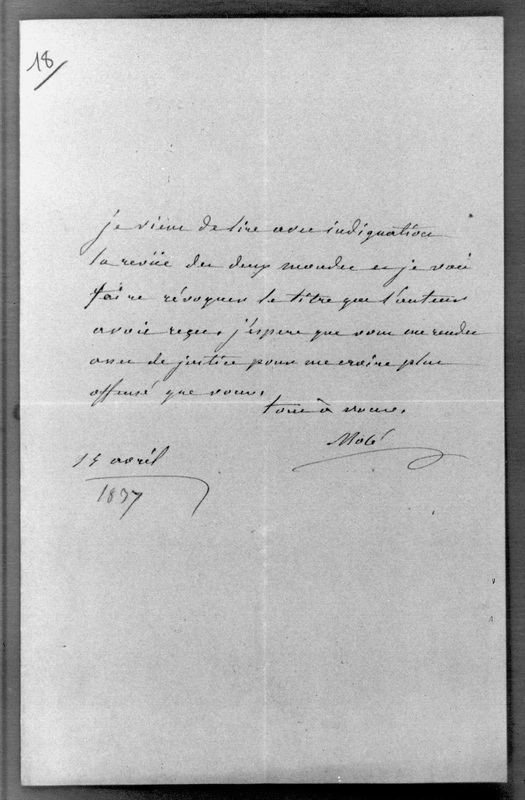 18
je viens de lire avec indignation
la revüe des deux mondes et je vais
faire révoquer le titre que l'auteur
avoit reçu, j'espere que vous me rendez
assez de justice pour me croire plus
offensé que vous.
tout à vous.
Molé
15 avril
1837